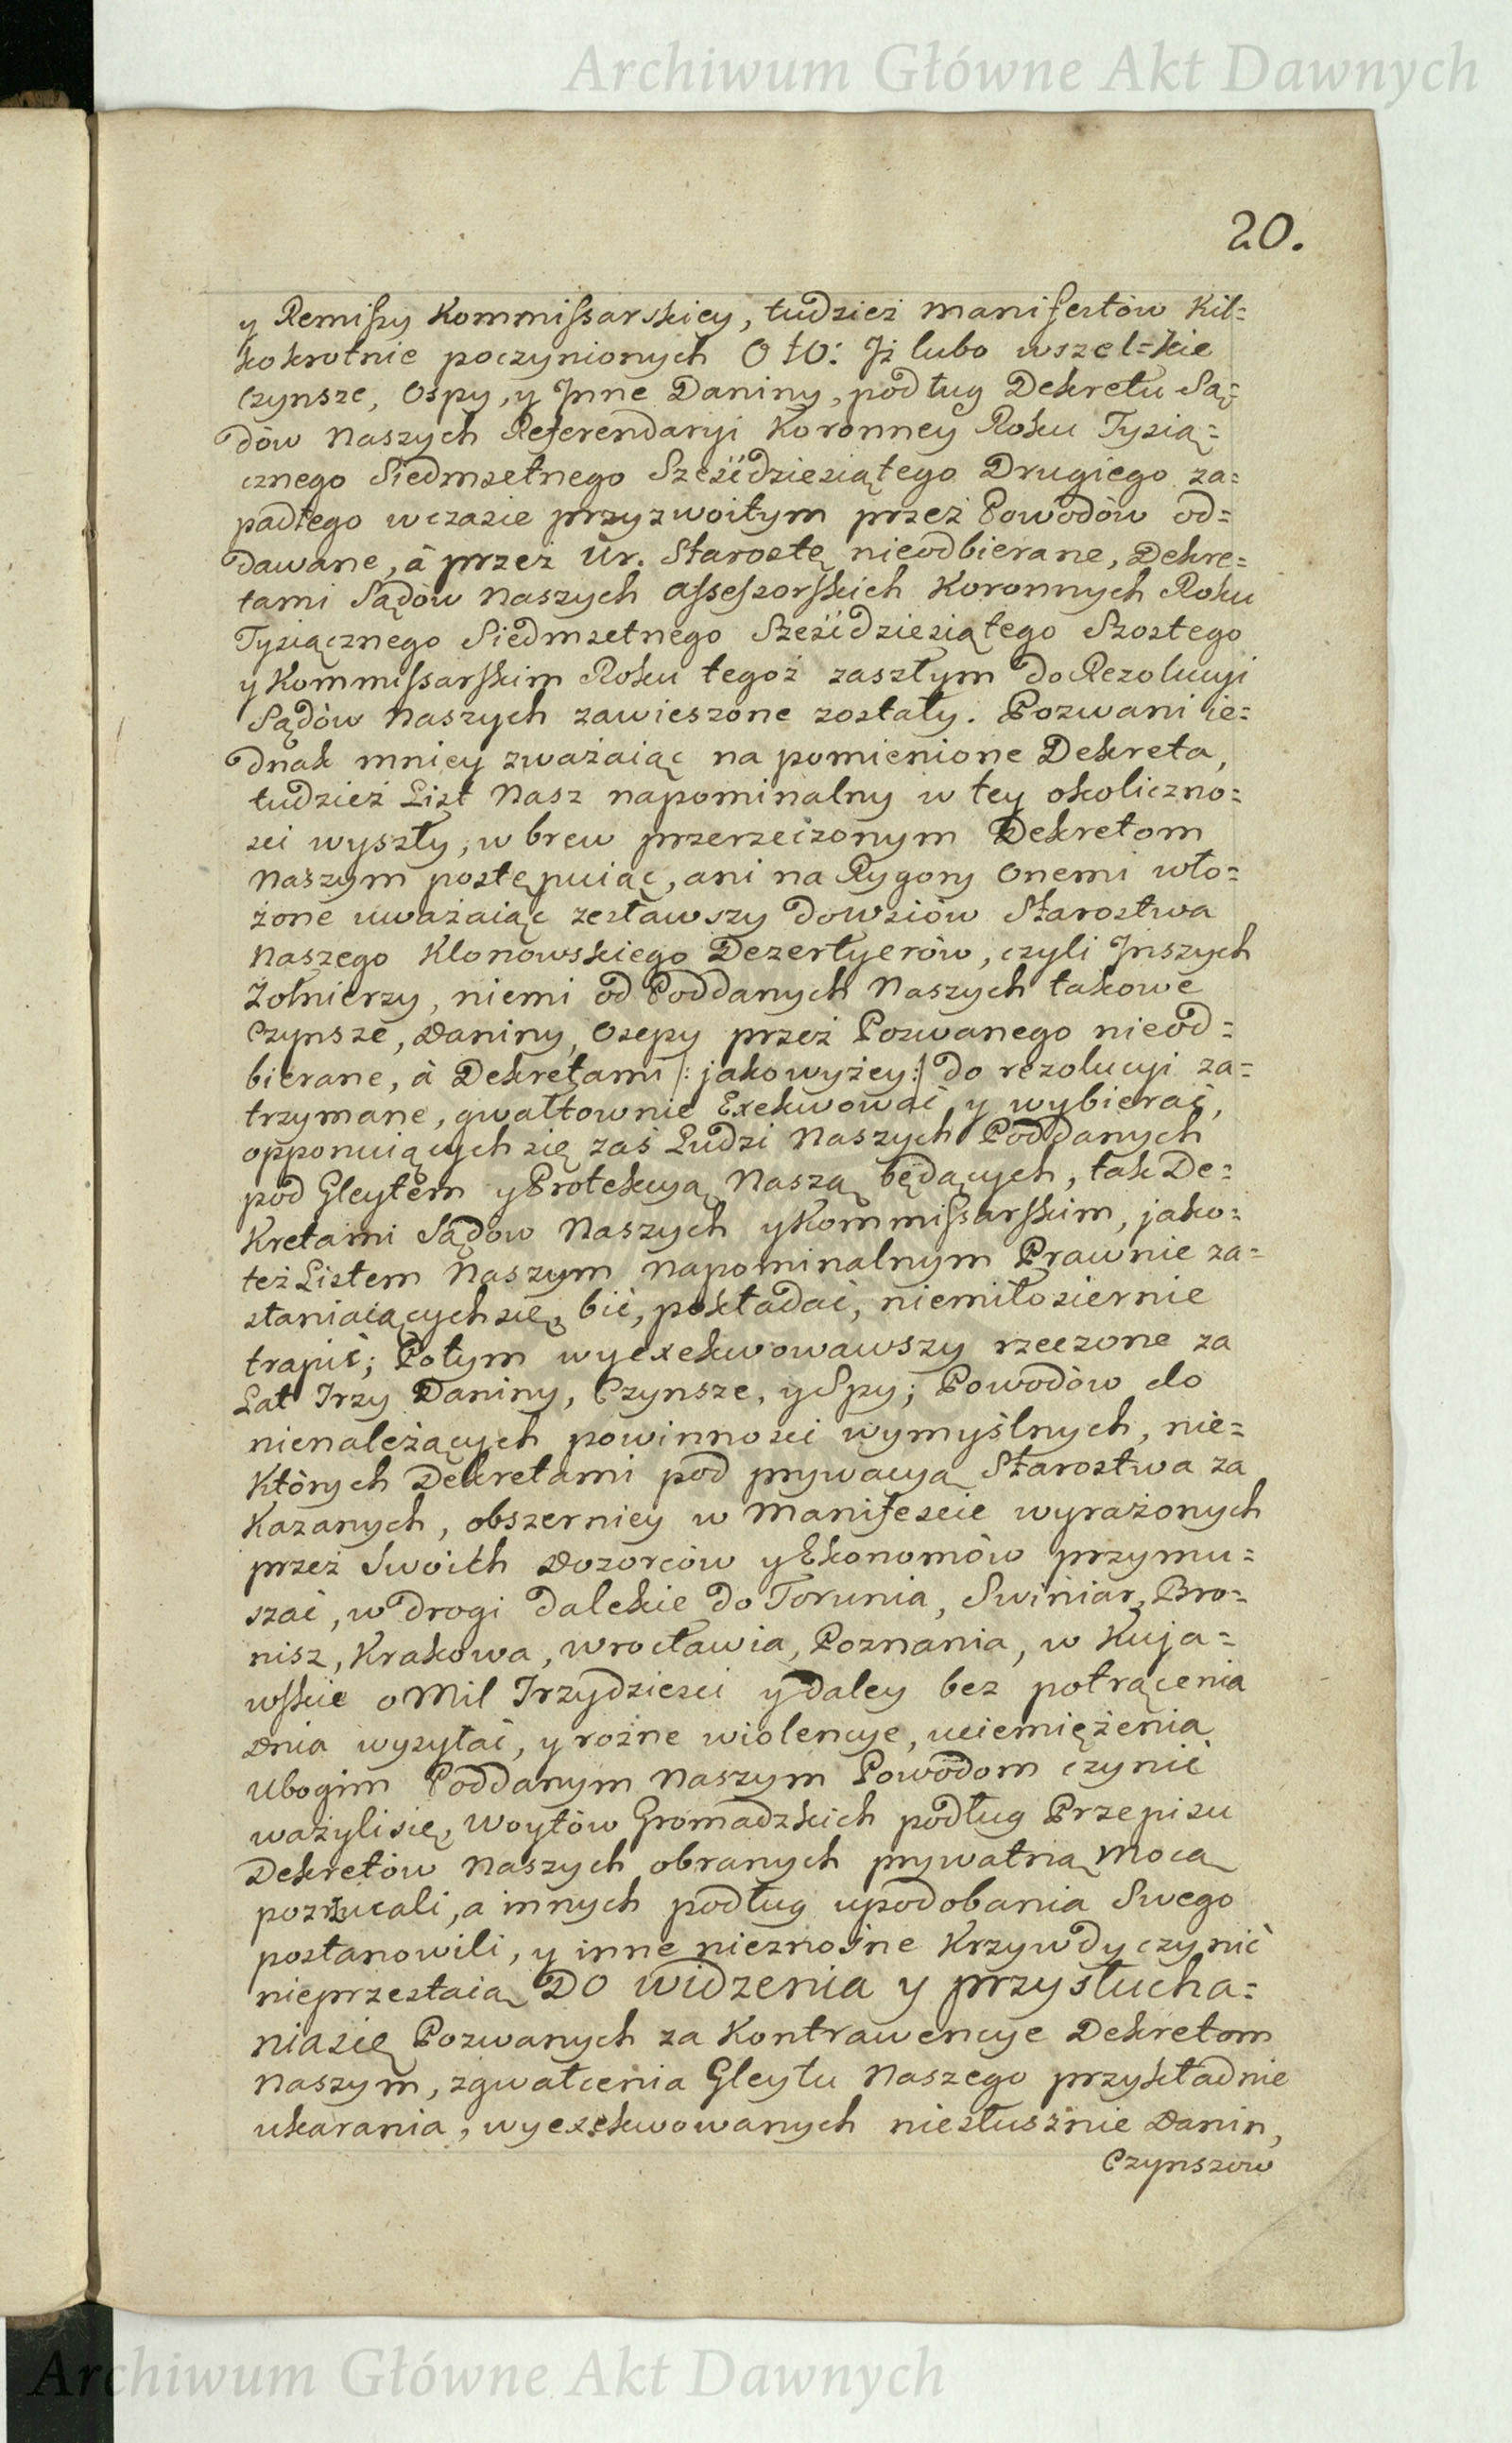 Archiwum Główne Akt Dawnych
20.
y Remissy Kommissarskiey, tudzież Manifestów Kil=
kokrotnie poczynionych O to: Jż lubo wszel=kie
Czynsze, Ospy, y Jnne Daniny, podług Dekretu Są=
dów Naszych Referendaryi Koronney Roku Tysią=
cznego Siedmsetnego Sześćdziesiątego Drugiego za=
padłego wczasie przyzwoitym przez Powodów od=
dawane, à przez Ur. Starostę nieodbierane, Dekre=
tami Sądów Naszych Assessorskich Koronnych Roku
Tysiącznego Siedmsetnego Sześćdziesiątego Szostego
y Kommissarskim Roku tegoż zaszłym do Rezolucyi
Sądów Naszych zawieszone zostały. Pozwani ie=
dnak mniey zważaiąc na pomienione Dekreta,
tudzież List Nasz napominalny w tey okoliczno=
sci wyszły, w brew przerzeczonym Dekretom
Naszym postępuiąc, ani na Rygory onemi wło=
żone uważaiąc zesławszy dowsiów Starostwa
Naszego Klonowskiego Dezertyerów, czyli Jnszych
Żołnierzy, niemi od Poddanych Naszych takowe
Czynsze, Daniny, Osepy przez Pozwanego nieod=
bierane, à Dekretami /: jakowyżey :/ do rezolucyi za=
trzymane, gwałtownie Exekwować y wybierać,
opponuiących się zaś Ludzi Naszych Poddanych
pod Gleytem y Protekcyą Naszą będących, tak De=
kretami Sądów Naszych y Kommissarskim, jako=
też Listem Naszym napominalnym Prawnie za=
słaniaiących się, bić, pokładać, niemiłosiernie
trapić; Potym wyexekwowawszy rzeczone za
Lat Trzy Daniny, Czynsze, y Spy; Powodów do
nienależących powinnosci wymyślnych, nie=
Których Dekretami pod prywacyą Starostwa za
Kazanych, obszerniey w Manifescie wyrażonych
przez Swoich Dozorców y Ekonomów przymu=
szać, w drogi dalekie do Torunia, Swiniar, Bro=
nisz, Krakowa, Wrocławia, Poznania, w Kuja=
wskie o Mil Trzydziesci y daley bez potrącenia
Dnia wysyłać, y rożne wiolencye, uciemiężenia
Ubogim Poddanym Naszym Powodom czynić
ważylisię, Woytów Gromadzkich podług Przepisu
Dekretów Naszych obranych prywatną Mocą
pozrzucali, a innych podług upodobania Swego
postanowili, y inne nieznośne Krzywdy czynić
nieprzestaią Do widzenia y przysłucha=
niasię Pozwanych za Kontrawencye Dekretom
Naszym, zgwałcenia Gleytu Naszego przykładnie
ukarania, wyexekwowanych niesłusznie Danin,
Czynszow
Archiwum Główne Akt Dawnych